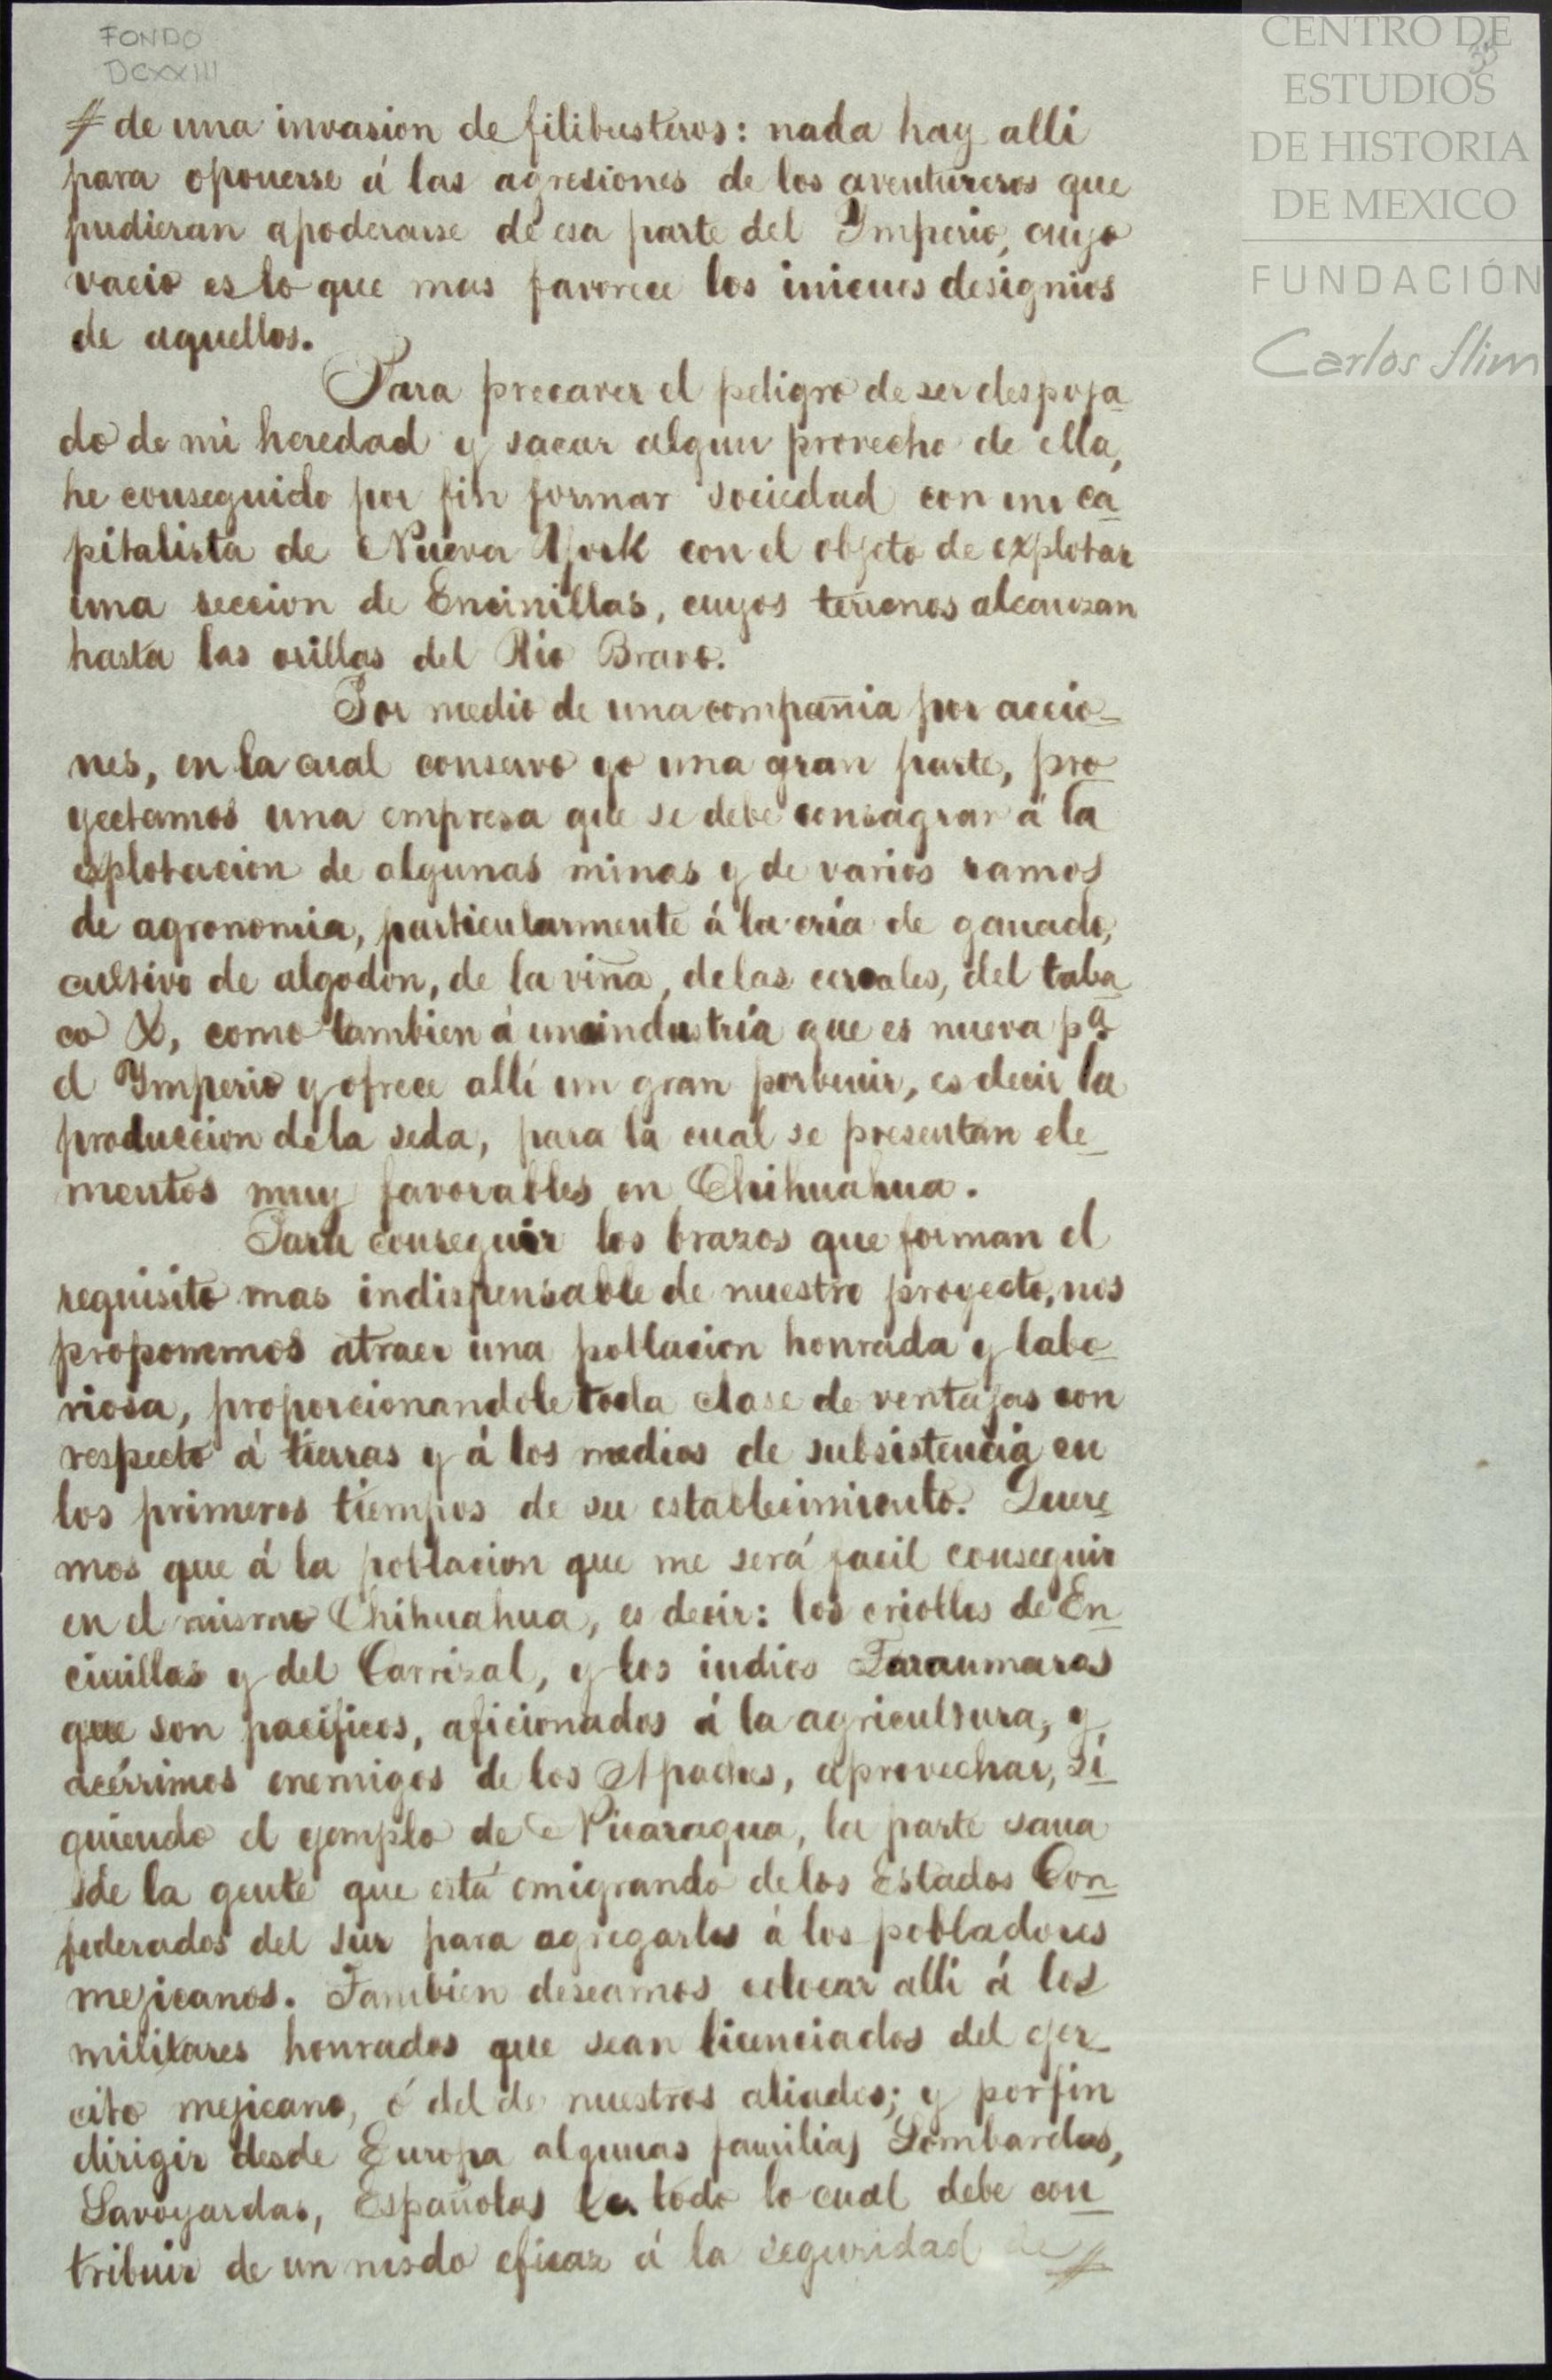 FONDO
DCXXIII
CENTRO DE
ESTUDIOS
DE HISTORIA
DE MEXICO
FUNDACIÓN
Carlos Slim
de una invasion de filibusteros: nada hay alli
para oponerse á las agresiones de los aventureros que
pudieran apoderarse de esa parte del Ymperio, cuyo
vacio es lo que mas favorece los inicuos designios
de aquellos.
Para precaver el peligro de ser despoja
do de mi heredad y sacar algun provecho de ella,
he conseguido por fin formar sociedad con un ca
pitalista de Nueva York con el objeto de explotar
una seccion de Encinillas, cuyos terrenos alcanzan
hasta las orillas del Rio Bravo.
Por medio de una compañia por accio
nes, en la cual conservo yo una gran parte, pro
yectamos una empresa que se debe consagrar á la
explotacion de algunas minas y de varios ramos
de agronomia, particularmente á la cría de ganado,
cultivo de algodon, de la viña, de las cereales, del taba
co &, como tambien á una industría que es nueva pª
el Ymperio y ofrece allí un gran porbenir, es decir la
produccion de la seda, para la cual se presentan ele
mentos muy favorables en Chihuahua.
Para conseguir los brazos que forman el
requisito mas indispensable de nuestro proyecto, nos
proponemos atraer una poblacion honrada y labo
riosa, proporcionandole toda clase de ventajas con
respecto á tierras y á los medios de subsistencia en
los primeros tiempos de su establecimiento. Quere
mos que á la poblacion que me será facil conseguir
en el mismo Chihuahua, es decir: los criollos de En
cinillas y del Carrizal, y los indios Taraumaras
que son pacificos, aficionados á la agricultura, y
acérrimos enemigos de los Apaches, aprovechar, si
guiendo el ejemplo de Nicaragua, la parte sana
de la gente que está emigrando de los Estados Con
federados del Sur para agregarles á los pobladores
mejicanos. Tambien deseamos colocar alli á los
militares honrados que sean licenciados del ejer
cito mejicano, ó del de nuestros aliados; y por fin
dirigir desde Europa algunas familias Lombardas,
Savoyardas, Españolas &a todo lo cual debe con
tribuir de un modo eficaz á la seguridad de